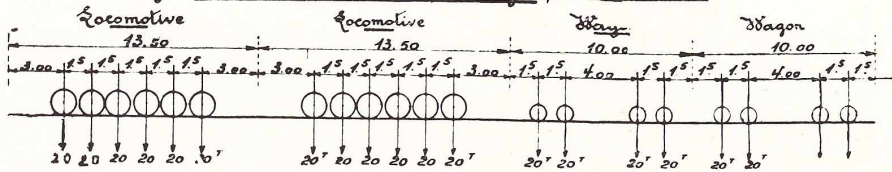 Locomotive Locomotive Wagon
13.50 13.50 10.00 10.00
3.00 1.5 1.5 1.5 1.5 1.5 3.00 3.00 1.5 1.5 1.5 1.5 1.5 3.00 1.5 1.5 4.00 1.5 1.5 1.5 1.5 4.00 1.5 1.5
20 20 20 20 20 20T 20 20 20 20 20T 20T 20T 20T 20T 20T 20T